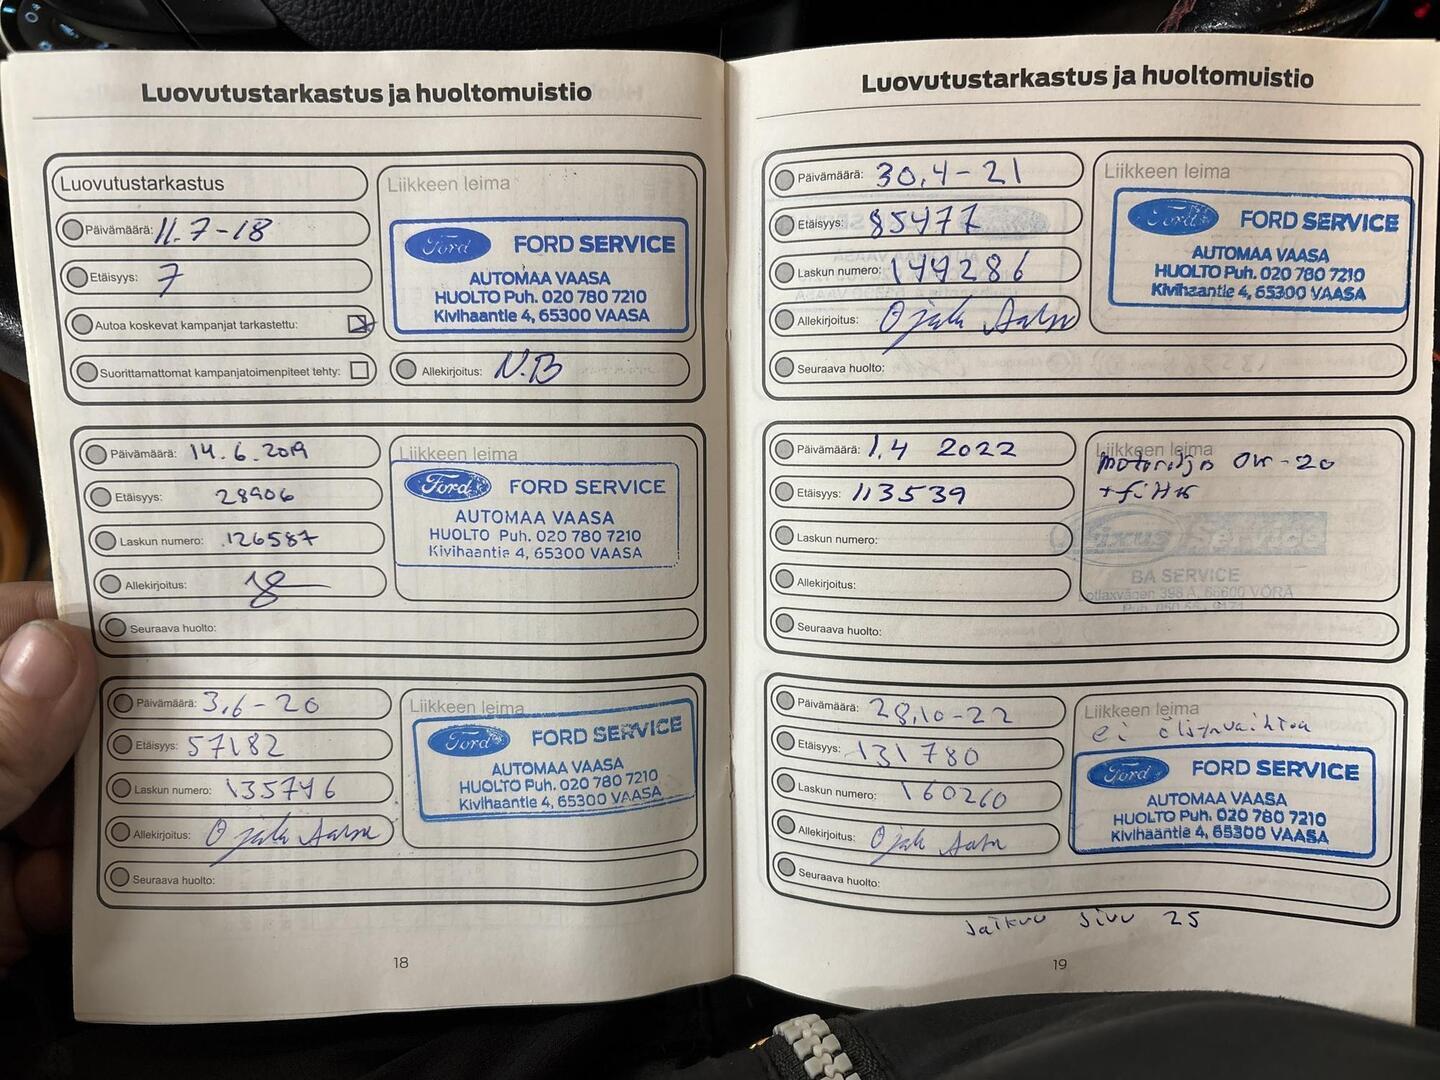 Luovutustarkastus ja huoltomuistio
Luovutustarkastus
Päivämäärä: 11.7-18
Etäisyys: 7
Autoa koskevat kampanjat tarkastettu:
Suorittamattomat kampanjatoimenpiteet tehty:
Liikkeen leima
Ford FORD SERVICE
AUTOMAA VAASA
HUOLTO Puh. 020 780 7210
Kivihaantie 4, 65300 VAASA
Allekirjoitus: N.B
Päivämäärä: 14.6.2019
Etäisyys: 28906
Laskun numero: 126587
Allekirjoitus:
Seuraava huolto:
Liikkeen leima
Ford FORD SERVICE
AUTOMAA VAASA
HUOLTO Puh. 020 780 7210
Kivihaantie 4, 65300 VAASA
Päivämäärä: 3.6-20
Etäisyys: 57182
Laskun numero: 135746
Allekirjoitus: Ojala
Seuraava huolto:
Liikkeen leima
Ford FORD SERVICE
AUTOMAA VAASA
HUOLTO Puh. 020 780 7210
Kivihaantie 4, 65300 VAASA
18
Luovutustarkastus ja huoltomuistio
Päivämäärä: 30.4-21
Etäisyys: 85477
Laskun numero: 144286
Allekirjoitus: Ojala
Seuraava huolto:
Liikkeen leima
Ford FORD SERVICE
AUTOMAA VAASA
HUOLTO Puh. 020 780 7210
Kivihaantie 4, 65300 VAASA
Päivämäärä: 1.4 2022
Etäisyys: 113539
Laskun numero:
Allekirjoitus:
Seuraava huolto:
Liikkeen leima
0W-20
Service
BA SERVICE
398 A, 66600 VÖRÅ
Päivämäärä: 28.10-22
Etäisyys: 131780
Laskun numero: 160260
Allekirjoitus: Ojala
Seuraava huolto:
Liikkeen leima
ei öljynvaihtoa
Ford FORD SERVICE
AUTOMAA VAASA
HUOLTO Puh. 020 780 7210
Kivihaantie 4, 65300 VAASA
Jatkuu sivu 25
19